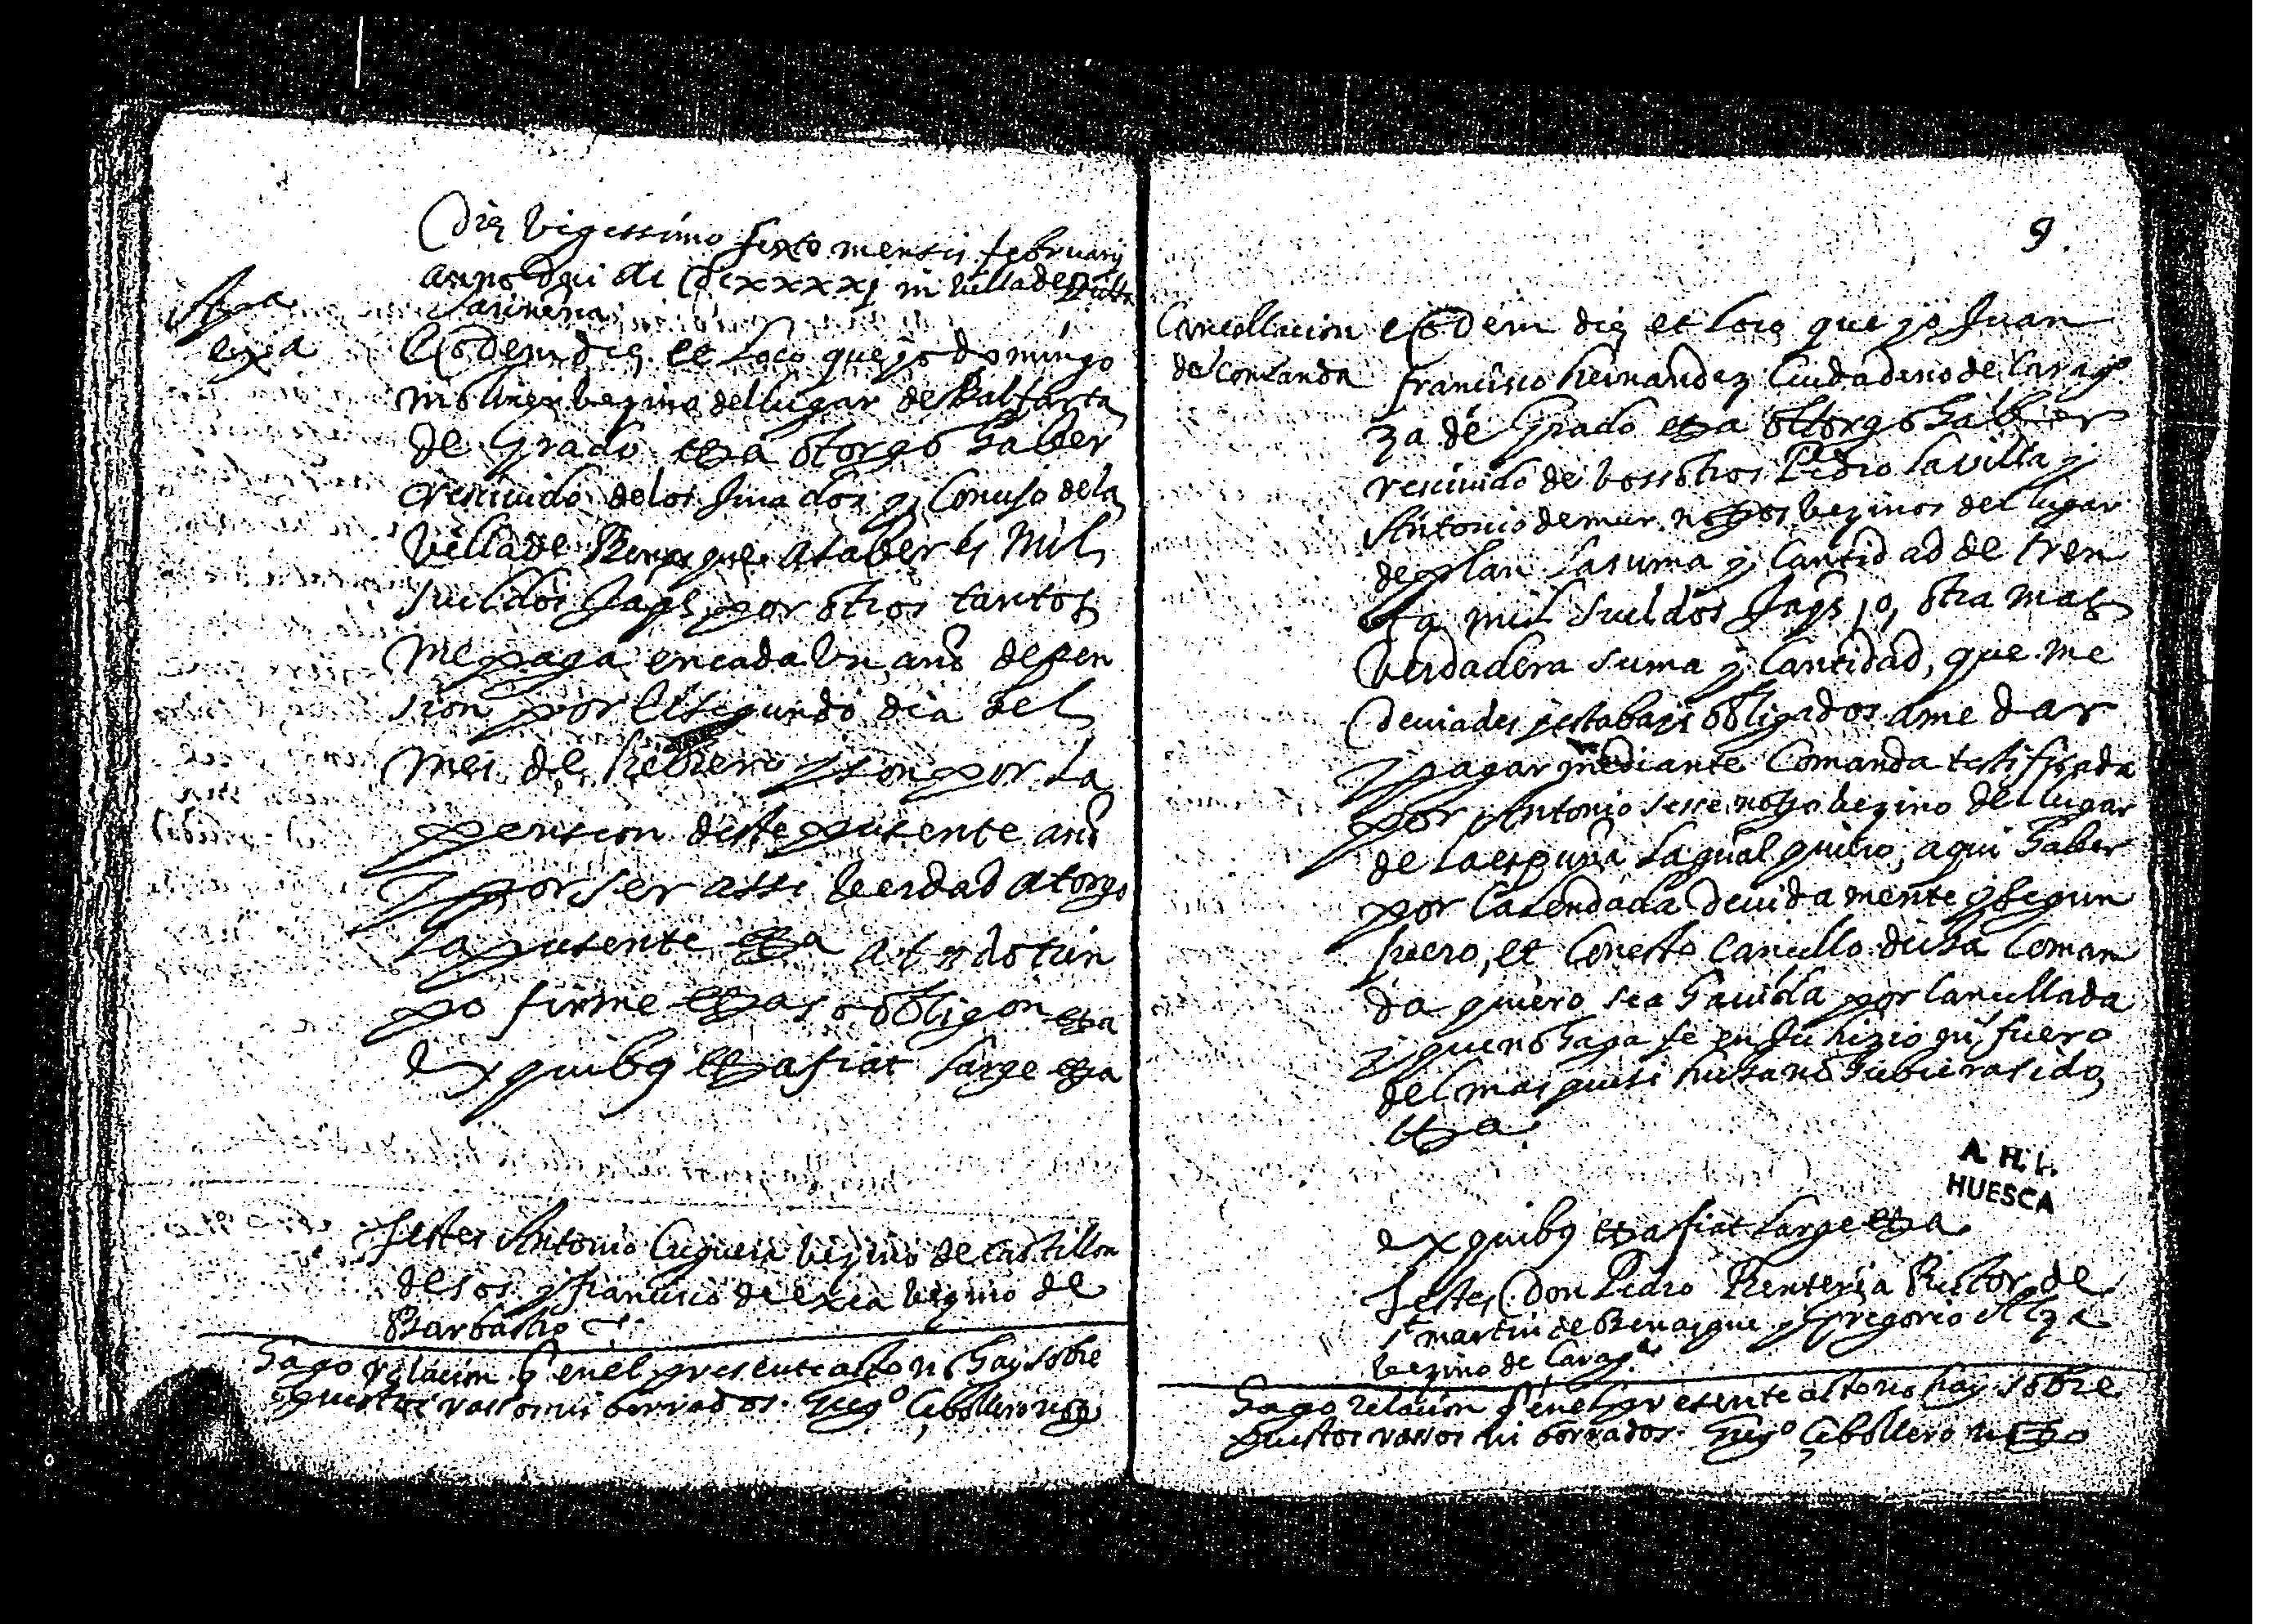 Die vigessimo sexto mensis februarij
anno Dni M DCxxxxj in villa de
Sariñena
Apa
exa
Eodem die et Loco que yo domingo
moliner vezino del lugar de Balfarta
de Grado etta otorgo haber
resciuido de los Jurados y Concejo de la
villa de Benasque a saber es Mil
sueldos Jaqs por otros tantos
me paga en cada vn año de pen
sion por el segundo dia del
mes de Febrero y son por la
pension deste presente año
y por ser assi verdad atorgo
la presente etta
po firme ettas obligon etta
Ex quibus etta fiat large etta
Testes Antonio Cuguera vezino de Castillon
de sos y francisco de exea vezino de
Barbastro
Hago relacion q en el presente acto no hay sobre
puestos rassos ni borrados. Greg.o Cebollero not
9.
Cancellacion
de Comanda
Eodem die et Loco que yo Juan
francisco hernandez Ciudadano de Carago
za de Grado etta ottorgo haber
resciuido de vossotros Pedro Lavilla y
Antonio de mur nottos vezinos del lugar
de plan la suma y cantidad de tren
ta mil sueldos Jaqs, o, otra mas
verdadera suma y cantidad, que me
deuiades y estabays obligados a me dar
y pagar mediante Comanda testificada
por Antonio Sesse notto vezino del lugar
de Laespuña la qual quiero, aqui haber
por calendada deuidamente y segun
fuero, et con esto cancello dicha Coman
da quiero sea hauida por Cancellada
y que no haga fe en Juhizio ni fuero
del mas que si hecha no hubiera sido
etta
A. H. P.
HUESCA
ex quibus etta fiat large etta
Testes Don Pedro Renteria Rector de
st martin de Benasque y Gregorio Alza
vezino de Carag.a
Hago relacion q en el presente acto no hay sobre
puestos rasos ni borrados. Greg.o Cebollero notto